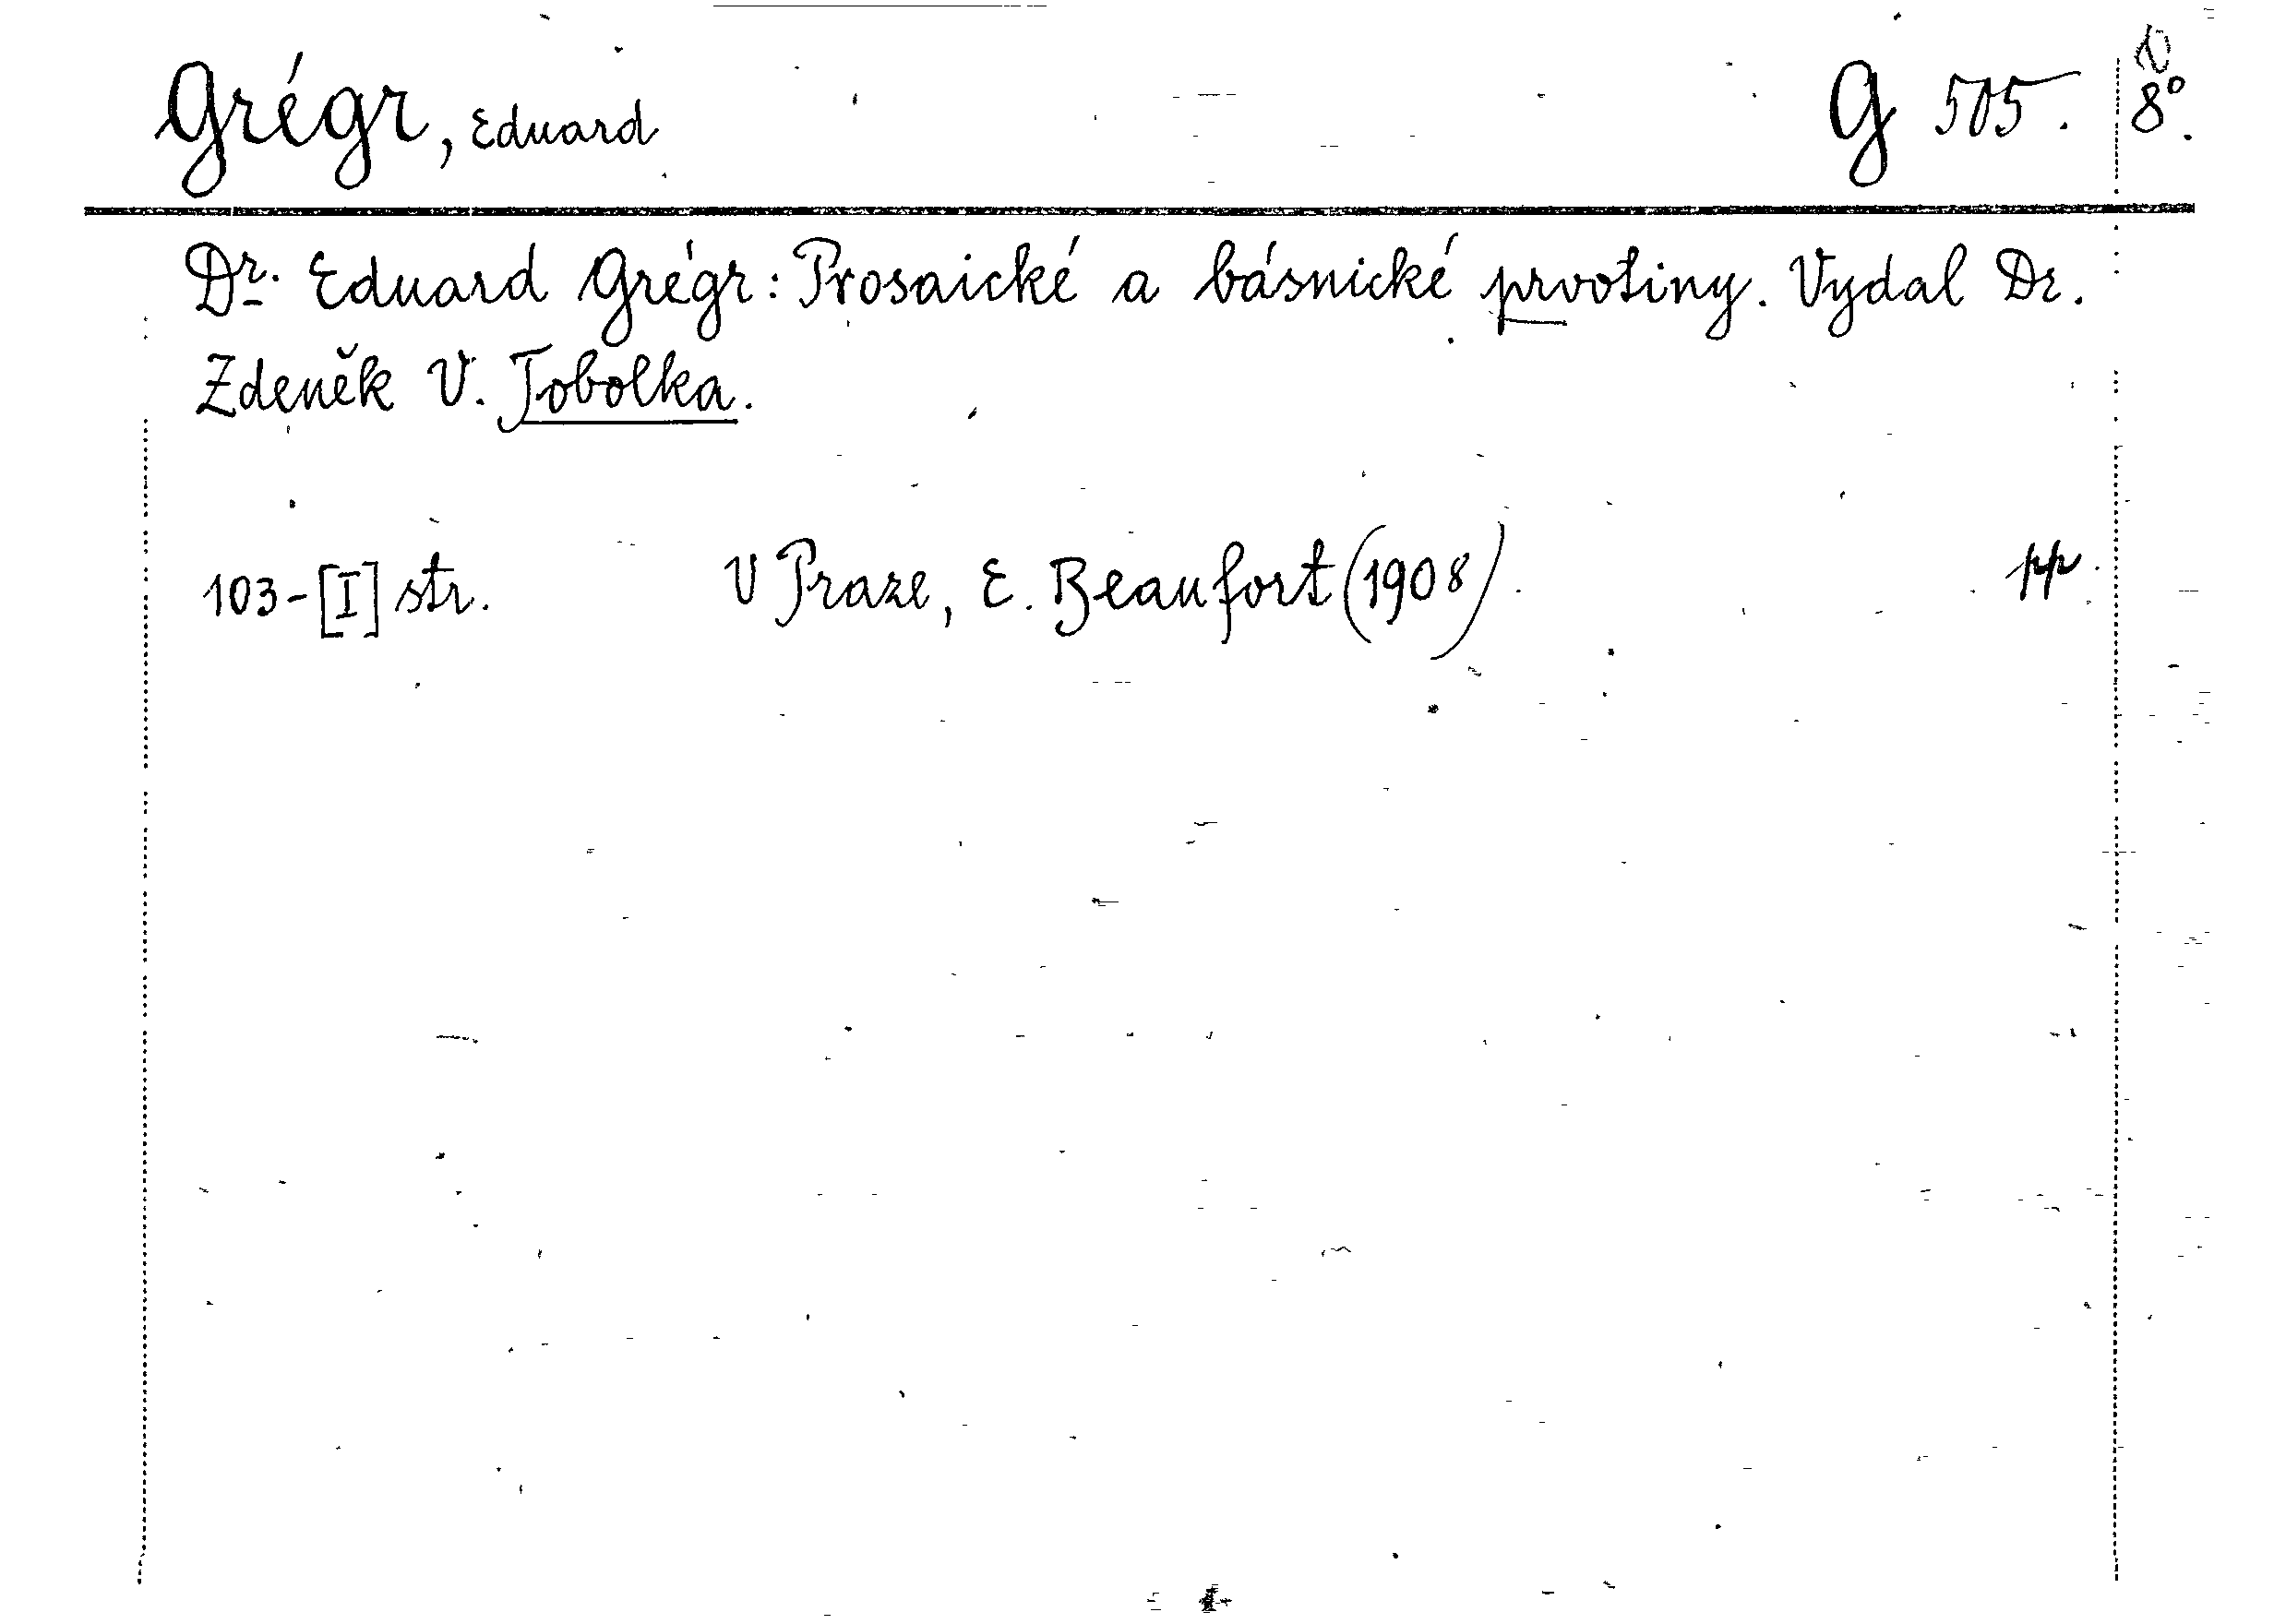 Grégr, Eduard G 505. 8°.
Dr. Eduard Grégr: Prosaické a básnické prvotiny. Vydal Dr.
Zdeněk V. Tobolka.
103-[I] str. V Praze, E. Beaufort (1908). pp.